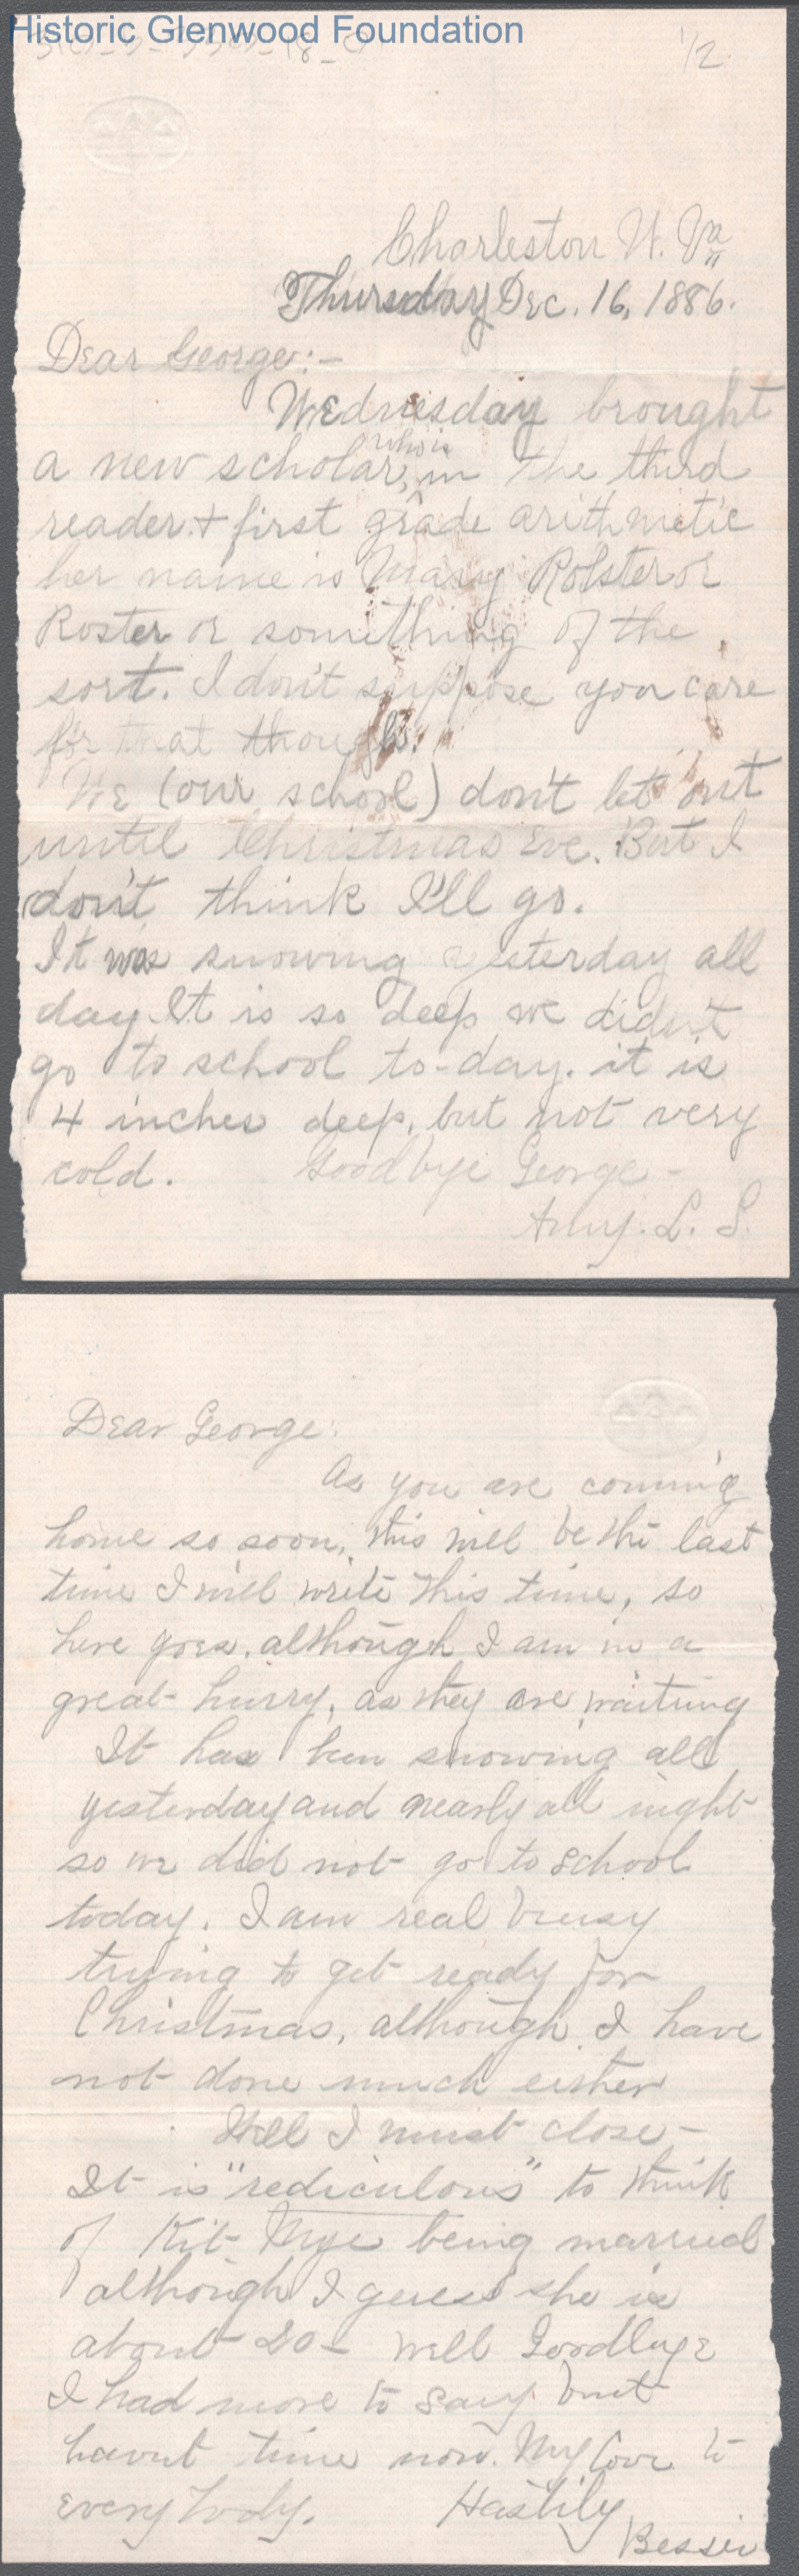 Historic Glenwood Foundation
1/2
Charleston W. Va
Thursday Dec. 16, 1886.
Dear George:-
Wednesday brought
who is
a new scholar, in the third
reader + first grade arithmetic
her name is Mary Rolster or
Roster or something of the
sort. I don't suppose you care
for that though.
We (our school) don't let out
until Christmas Eve. But I
don't think I'll go.
It was snowing yesterday all
day. It is so deep we didn't
go to school to-day. it is
4 inches deep, but not very
cold. Goodbye George -
Amy. L. S.
Dear George:
As you are coming
home so soon, this will be the last
time I will write this time, so
here goes, although I am in a
great hurry, as they are waiting
It has been snowing all
yesterday and nearly all night
so we did not go to school
today. I am real busy
trying to get ready for
Christmas, although I have
not done much either
Well I must close -
It is "rediculous" to think
of Kit Nye being married
although I guess she is
about 20 - Well Goodbye
I had more to say but
havnt time now. My love to
everybody. Hastily
Bessie